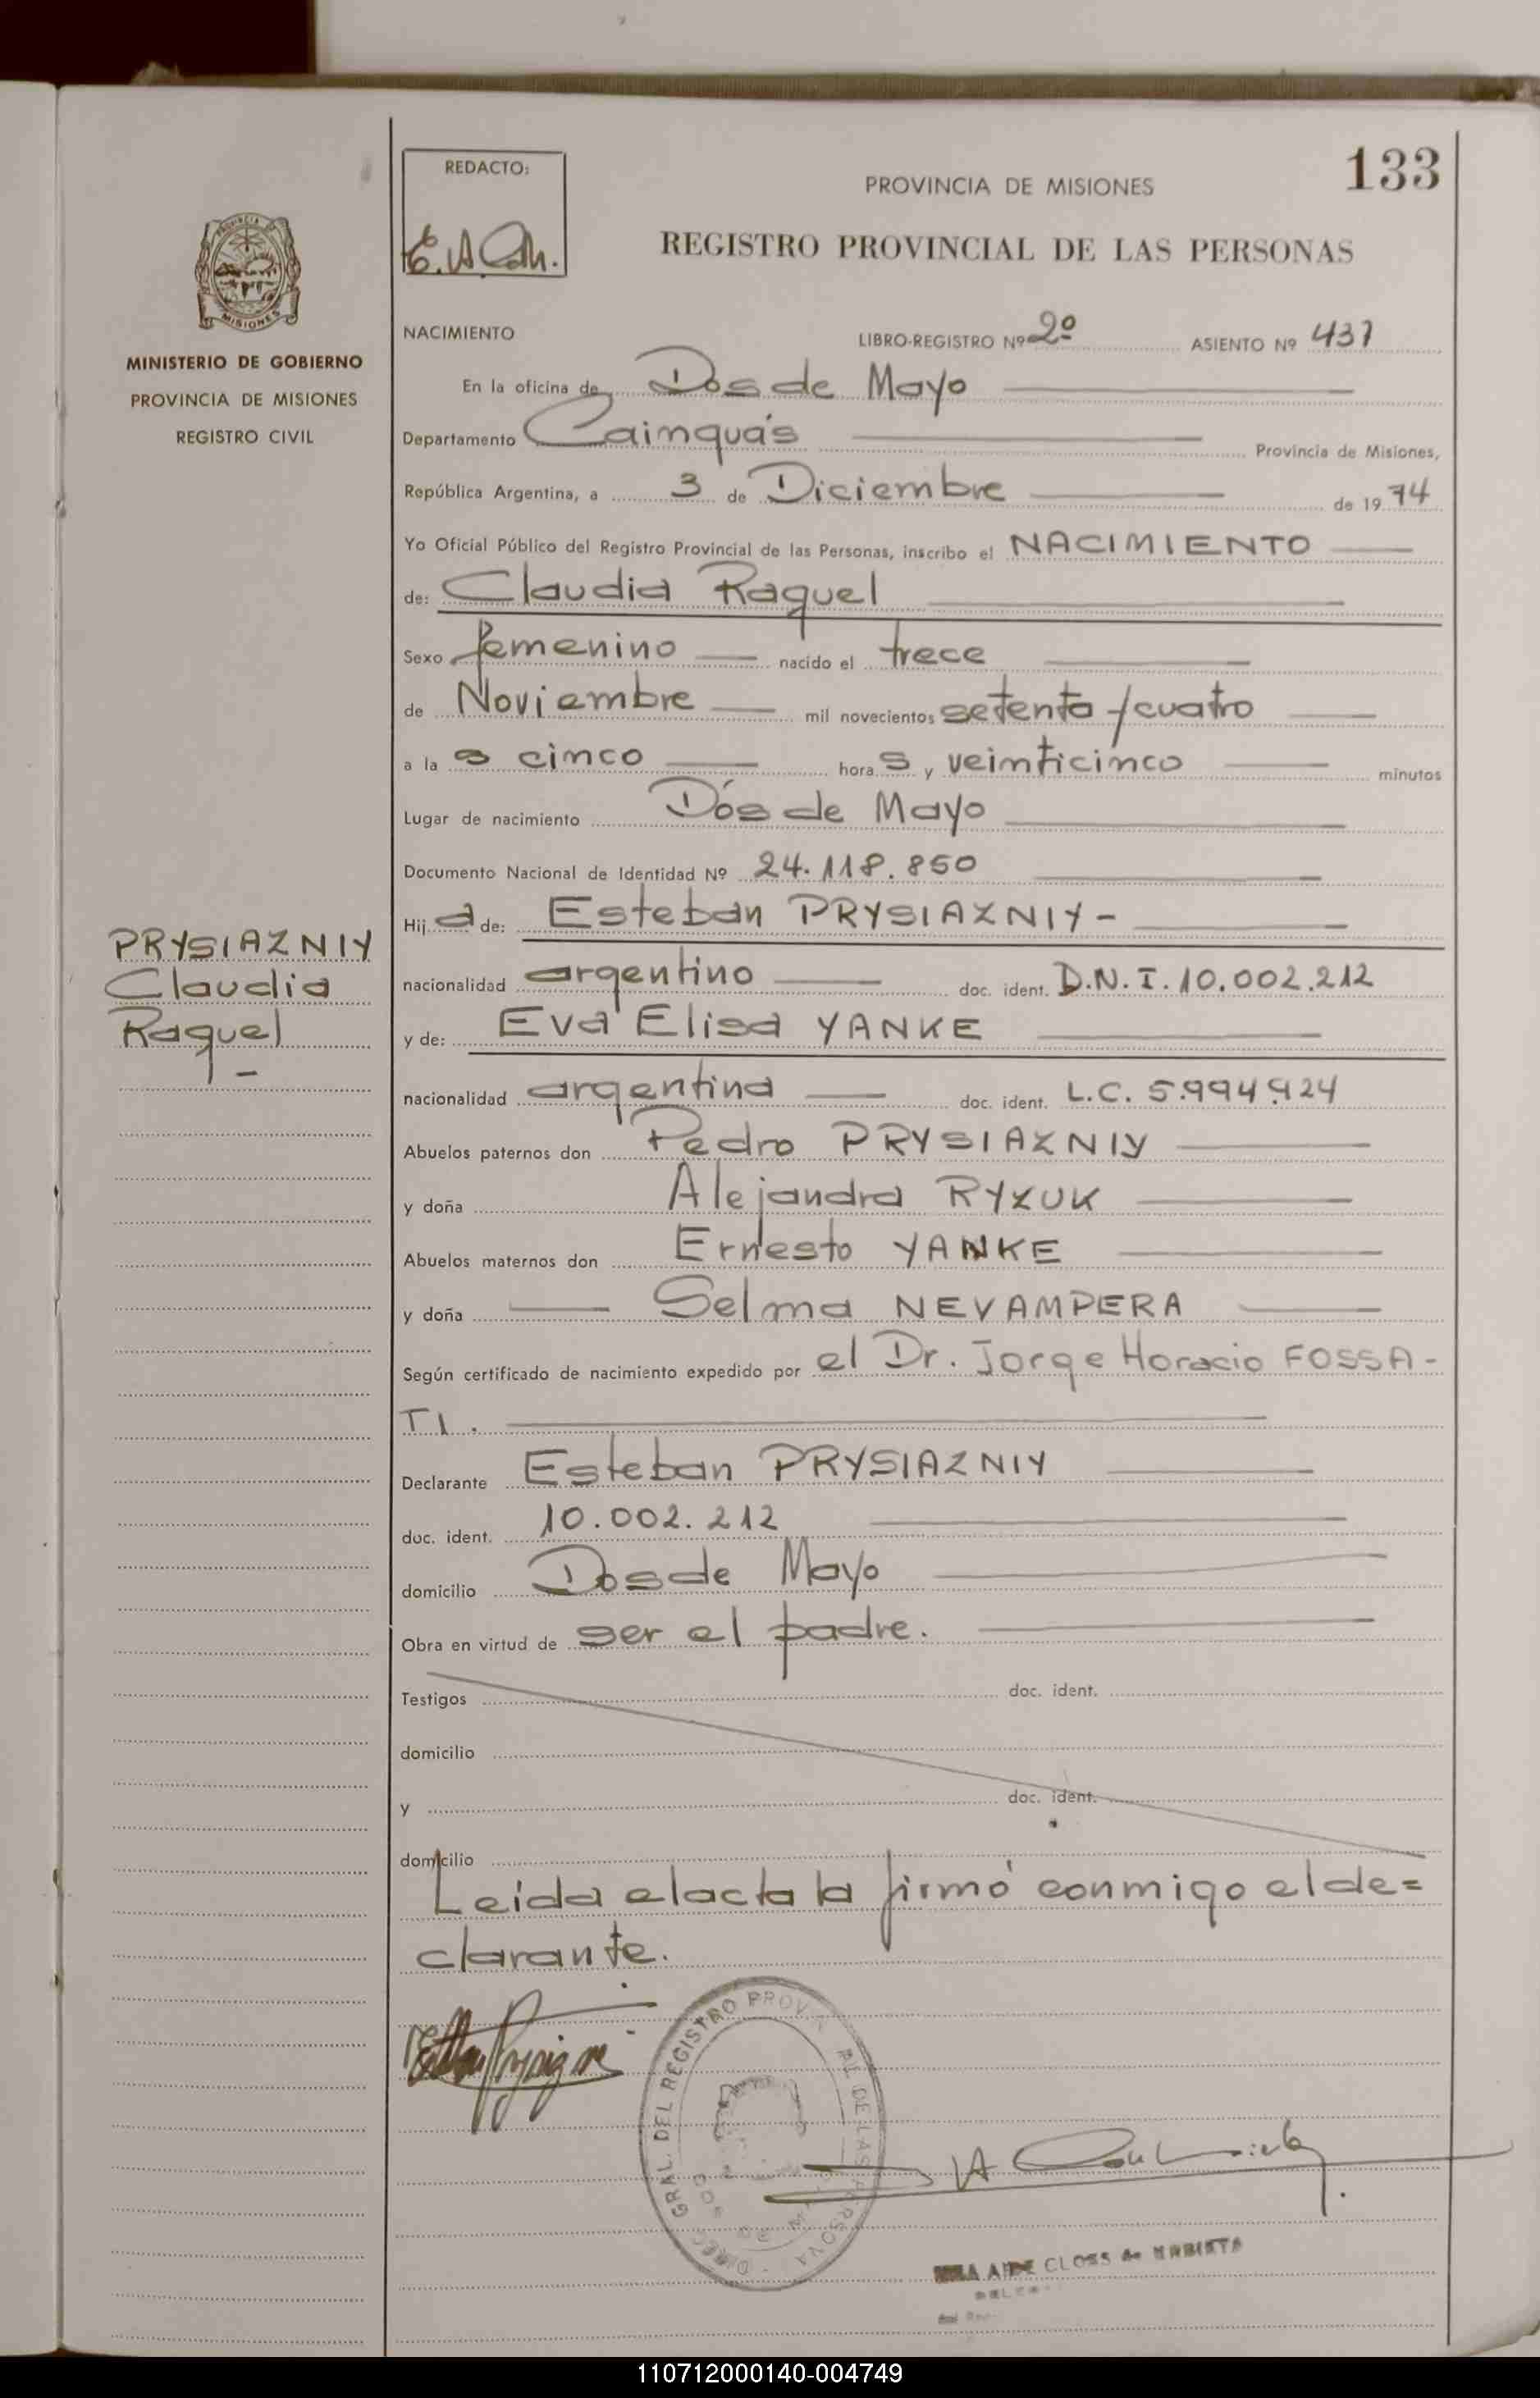 133
REDACTO:
PROVINCIA DE MISIONES
REGISTRO PROVINCIAL DE LAS PERSONAS
MISIONES
MINISTERIO DE GOBIERNO
PROVINCIA DE MISIONES
REGISTRO CIVIL
NACIMIENTO LIBRO-REGISTRO Nº 2º ASIENTO Nº 437
En la oficina de Dos de Mayo
Departamento Cainguás Provincia de Misiones,
República Argentina, a 3 de Diciembre de 1974
Yo Oficial Público del Registro Provincial de las Personas, inscribo el NACIMIENTO
de: Claudia Raquel
Sexo femenino nacido el trece
de Noviembre mil novecientos setenta y cuatro
a la s cinco hora s y veinticinco minutos
Lugar de nacimiento Dos de Mayo
Documento Nacional de Identidad Nº 24.118.850
Hij a de: Esteban PRYSIAZNIY-
PRYSIAZNIY
Claudia
Raquel
-
nacionalidad argentino doc. ident. D.N.I. 10.002.212
y de: Eva Elisa YANKE
nacionalidad argentina doc. ident. L.C. 5.994.924
Abuelos paternos don Pedro PRYSIAZNIY
y doña Alejandra RYZUK
Abuelos maternos don Ernesto YANKE
y doña Selma NEVAMPERA
Según certificado de nacimiento expedido por el Dr. Jorge Horacio FOSSA-
TI.
Declarante Esteban PRYSIAZNIY
doc. ident. 10.002.212
domicilio Dos de Mayo
Obra en virtud de ser el padre.
Testigos doc. ident.
domicilio
y doc. ident.
domicilio
Leída el acta la firmó conmigo el de=
clarante.
DIREC. GRAL. DEL REGISTRO PROV DE LAS PERSONA
AIDE CLOSS de
110712000140-004749